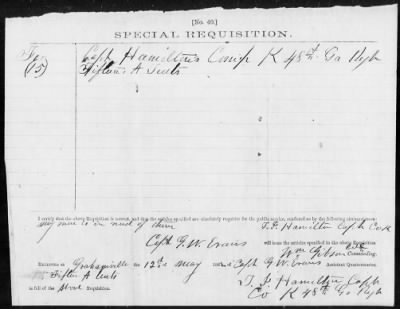 [No. 40.]
SPECIAL REQUISITION.
For Capt Hamilton's Comp K 48th Ga Regt
(15) Fifteen A Tents
I certify that the above Requisition is correct, and that the articles specified are absolutely requisite for the public service, rendered so by the following circumstances:
my men in need of them
T. J. Hamilton Capt Co K
Capt G. W. Evans will issue the articles specified in the above Requisition.
Wm Gibson Col
Commanding.
Received at Grahamville the 12th May of Capt G W Evans Assistant Quartermaster,
Fifteen A Tents
in full of the above Requisition.
T. J. Hamilton Capt
Co K 48th Ga Regt